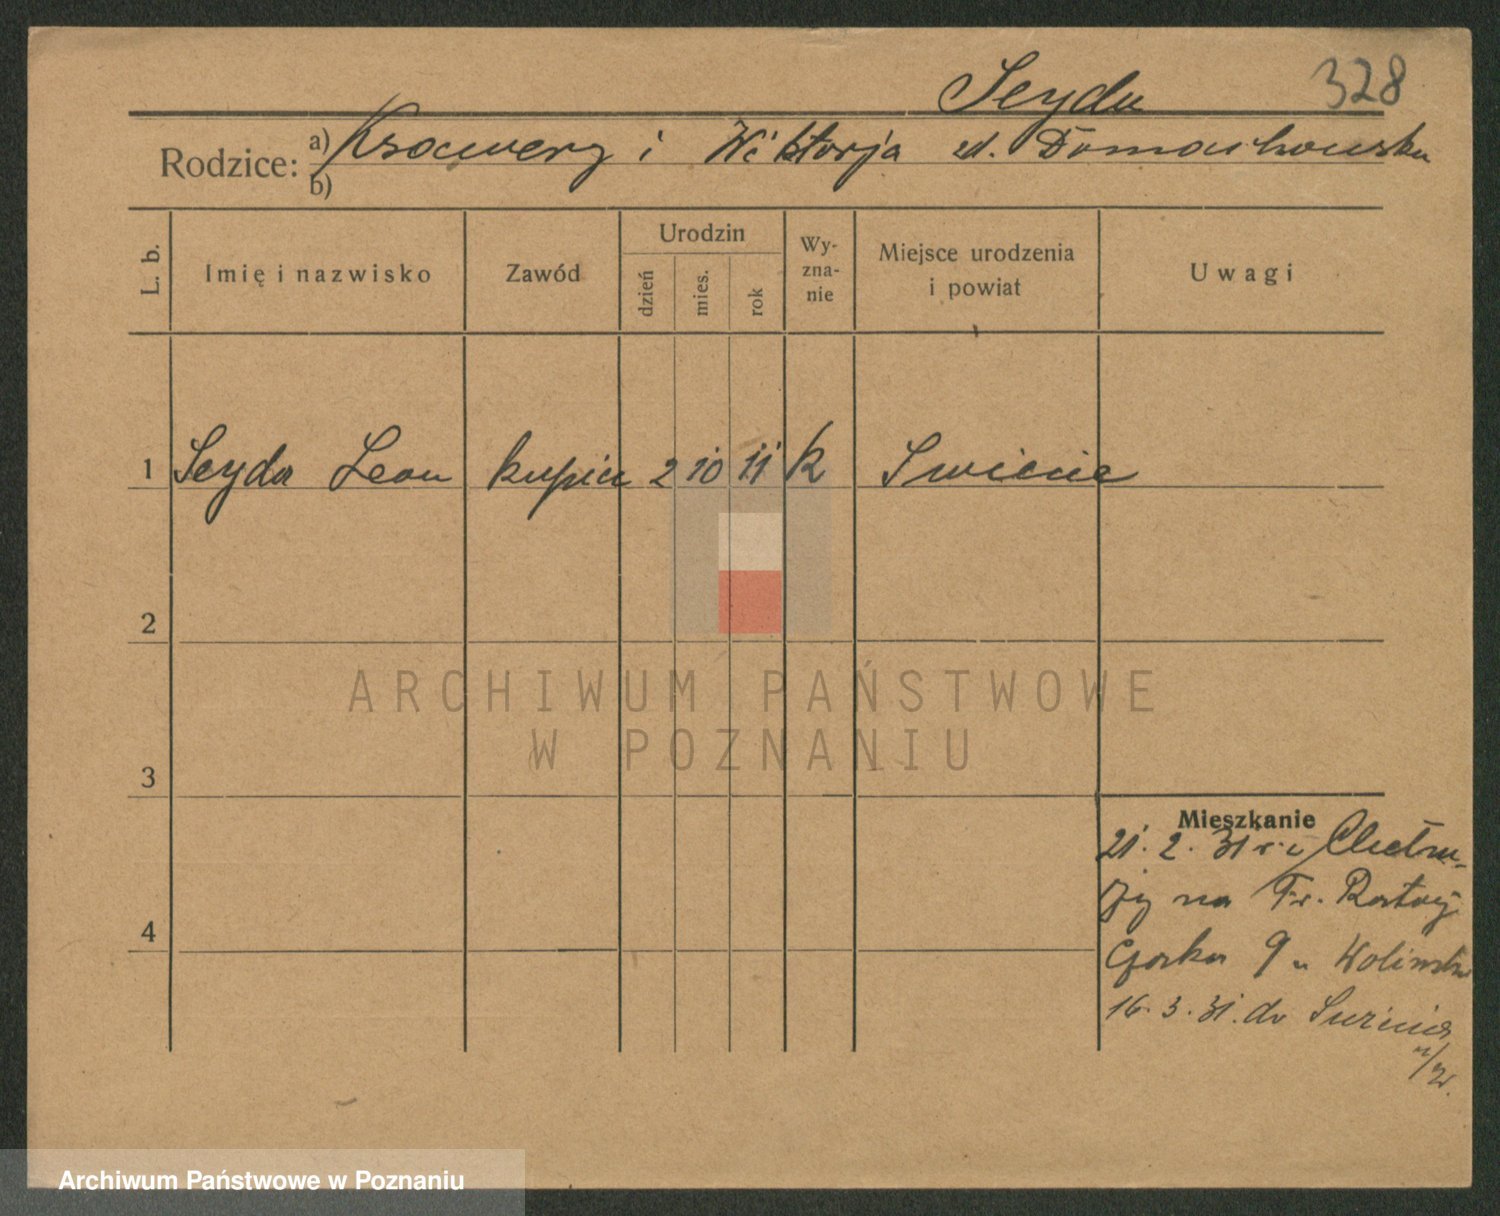 Seyda 328
Rodzice: a) Ksawery i Wiktorja
b)
L. b.
Imię i nazwisko
Zawód
Urodzin
dzień
mies.
rok
Wy-
zna-
nie
Miejsce urodzenia
i powiat
Uwagi
1 Seyda Leon kupiec 2 10 11 k Swiecie
2
ARCHIWUM PAŃSTWOWE
W POZNANIU
3
Mieszkanie
21. 2. 31 r. z
na Fr. Rataj
9 u
4
16. 3. 31. do
Archiwum Państwowe w Poznaniu